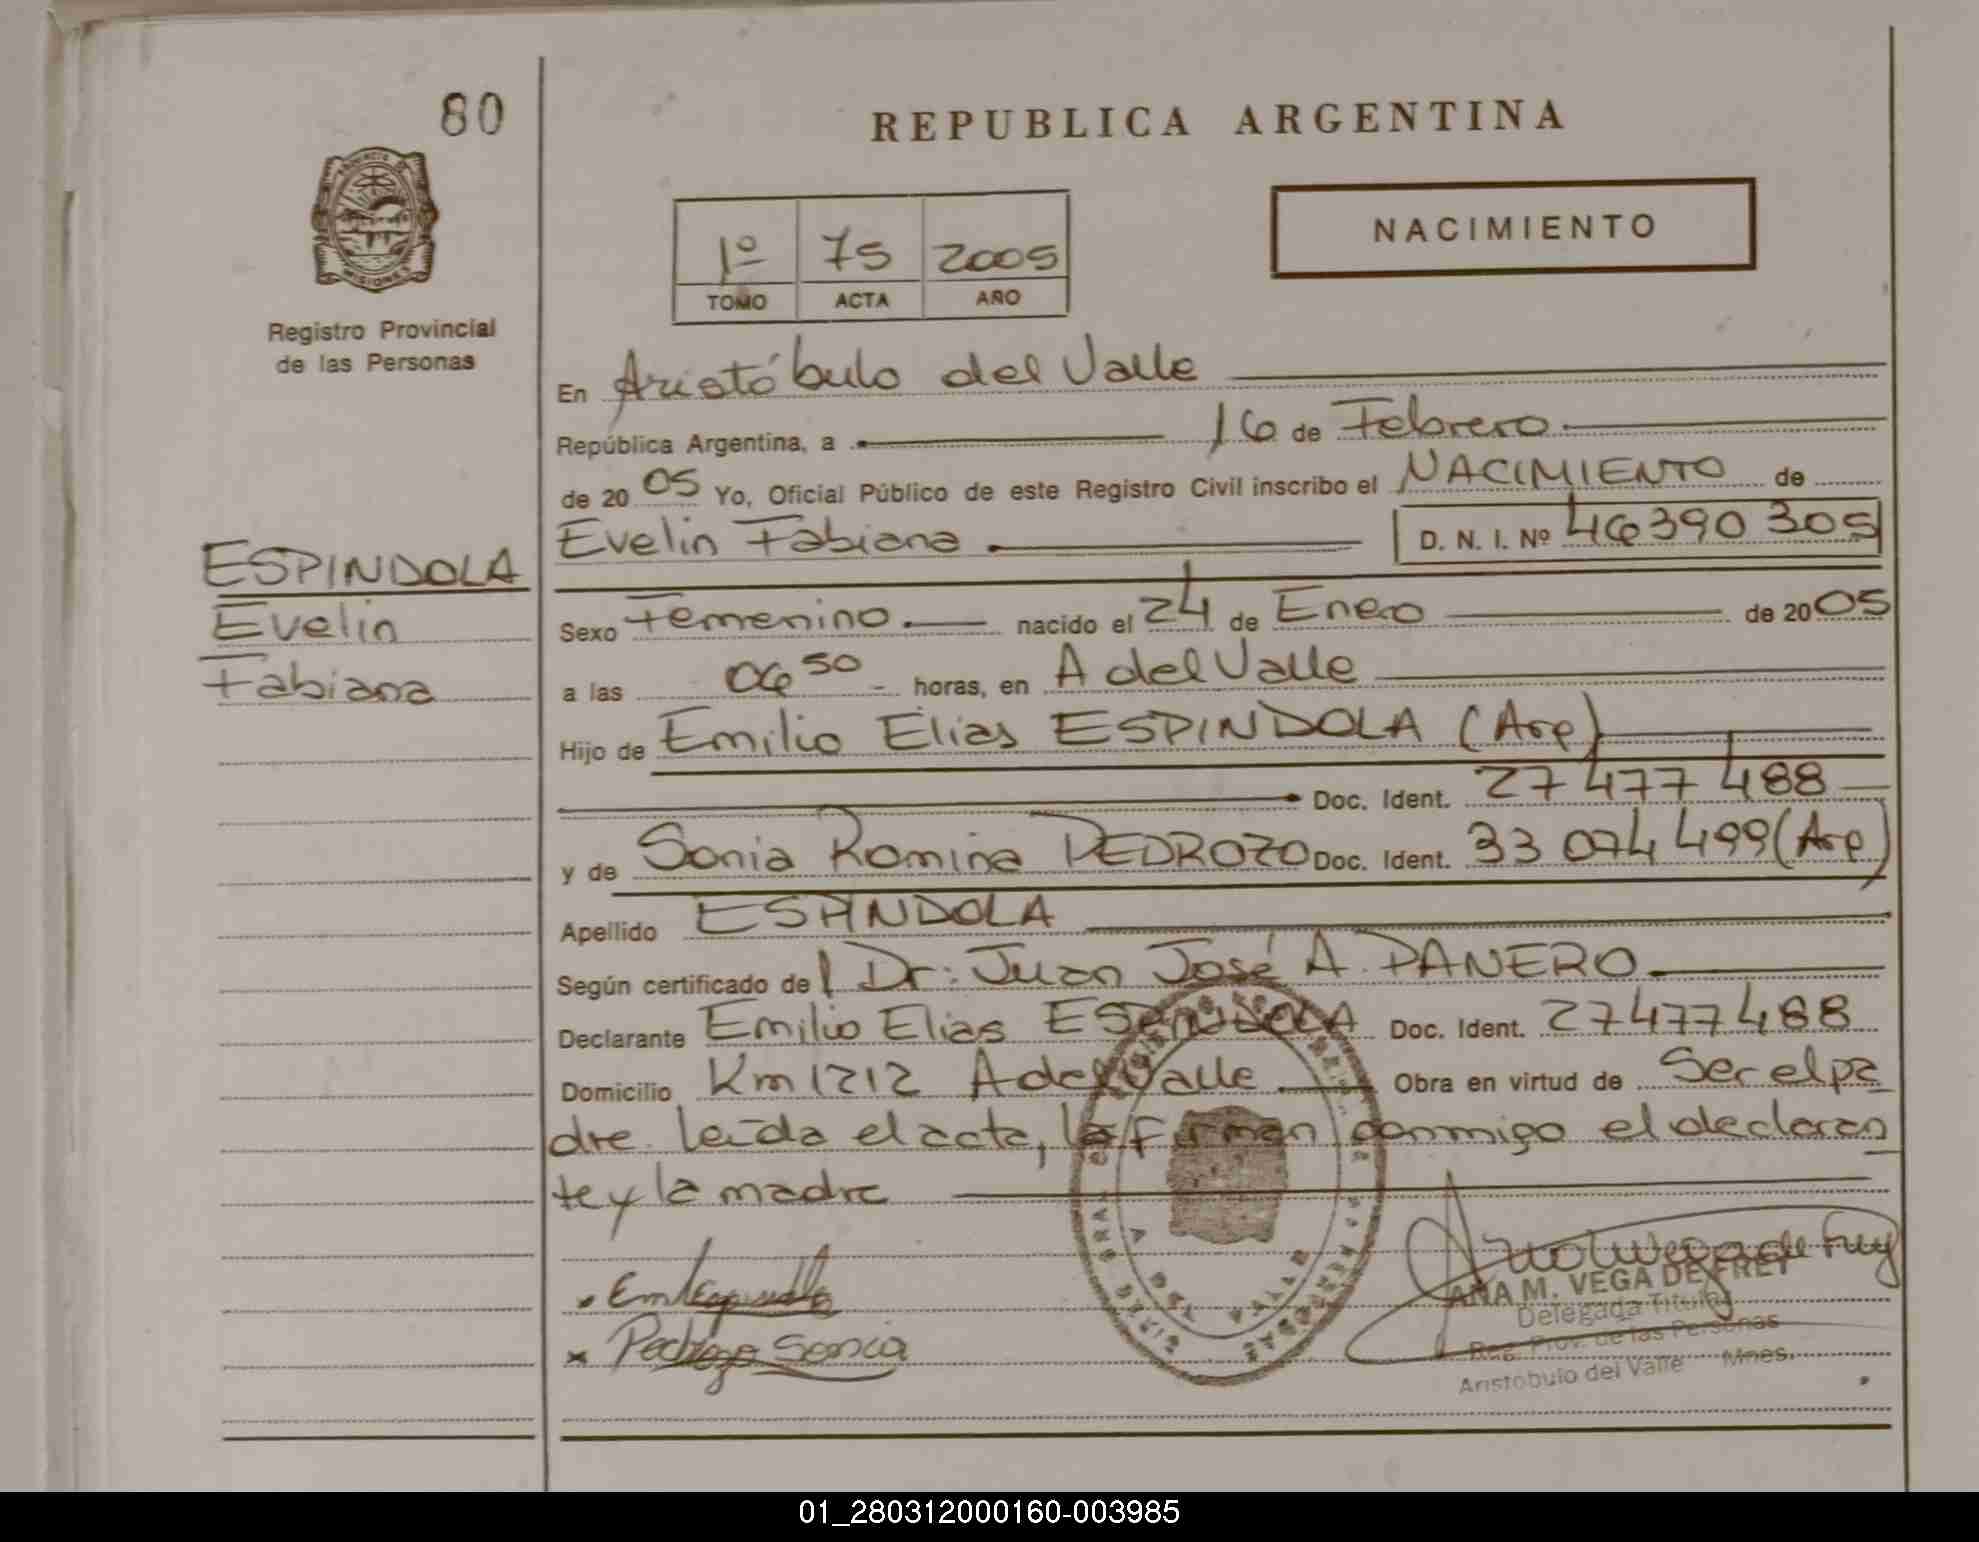 80
REPUBLICA ARGENTINA
PROVINCIA DE
MISIONES
Registro Provincial
de las Personas
1º 75 2005
TOMO ACTA AÑO
NACIMIENTO
En Aristóbulo del Valle
República Argentina, a 16 de Febrero
de 2005 Yo, Oficial Público de este Registro Civil inscribo el NACIMIENTO de
ESPINDOLA
Evelin
Fabiana
Evelin Fabiana D. N. I. Nº 46390305
Sexo Femenino nacido el 24 de Enero de 2005
a las 06 50 horas, en A del Valle
Hijo de Emilio Elias ESPINDOLA (Arg)
Doc. Ident. 27 477 488
y de Sonia Romina PEDROZO Doc. Ident. 33 074 499 (Arg)
Apellido ESPINDOLA
Según certificado de Dr: Juan José A. PANERO
Declarante Emilio Elias ESPINDOLA Doc. Ident. 27477488
Domicilio Km 1212 A del Valle Obra en virtud de Ser el pa
dre. Leída el acta, la firman conmigo el declaran
te y la madre
Pedrozo Sonia
A DEL VALLE
ANA M. VEGA DE FREY
Delegada Titular
Reg. Prov. de las Personas
Aristobulo del Valle Mnes.
01_280312000160-003985